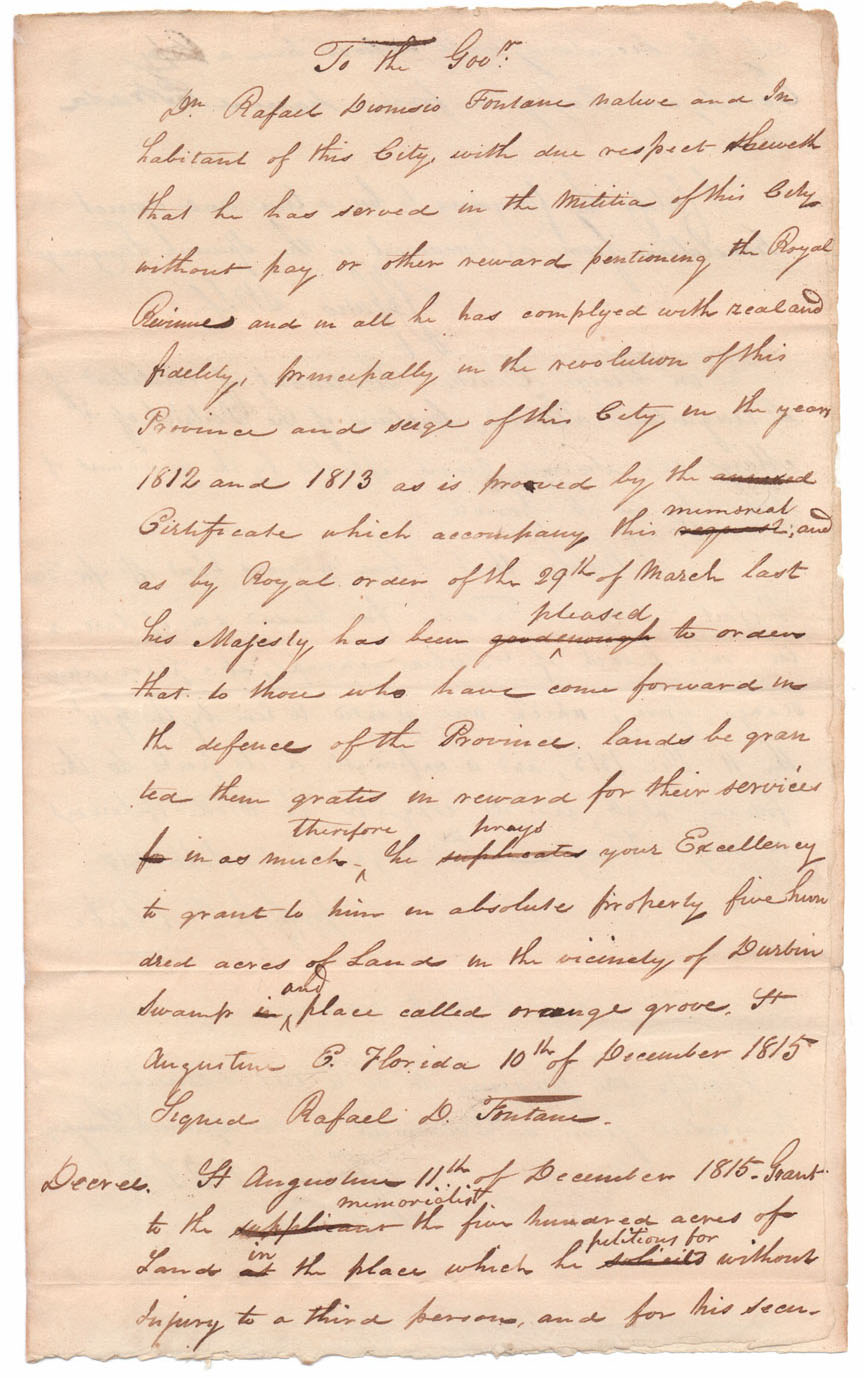 To the Govr.
Dn Rafael Dionisio Fontane native and In
habitant of this City, with due respect sheweth
that he has served in the Militia of this City
without pay or other reward pentioning the Royal
Revinue and in all he has complyed with zeal and
fidelity, principally in the revolution of this
Province and seige of this City in the years
1812 and 1813 as is prooved by the annexed
memorial
Certificate which accompany this request; and
as by Royal order of the 29th of March last
pleased
his Majesty has been good enough to order
that to those who have come forward in
the defence of the Province lands be gran
ted them gratis in reward for their services
therefore prays
fo in as much he suplicates your Excellency
to grant to him in absolute property five hun
dred acres of Land in the vicinety of Durbin
and
Swamp in place called orange grove. St
Augustine E. Florida 10th of December 1815
Signed Rafael D. Fontane.
Decree. St Augustine 11th of December 1815 - Grant
memorialist
to the supplicant the five hundred acres of
in petitions for
Land at the place which he solicits without
Injury to a third person, and for his secu-